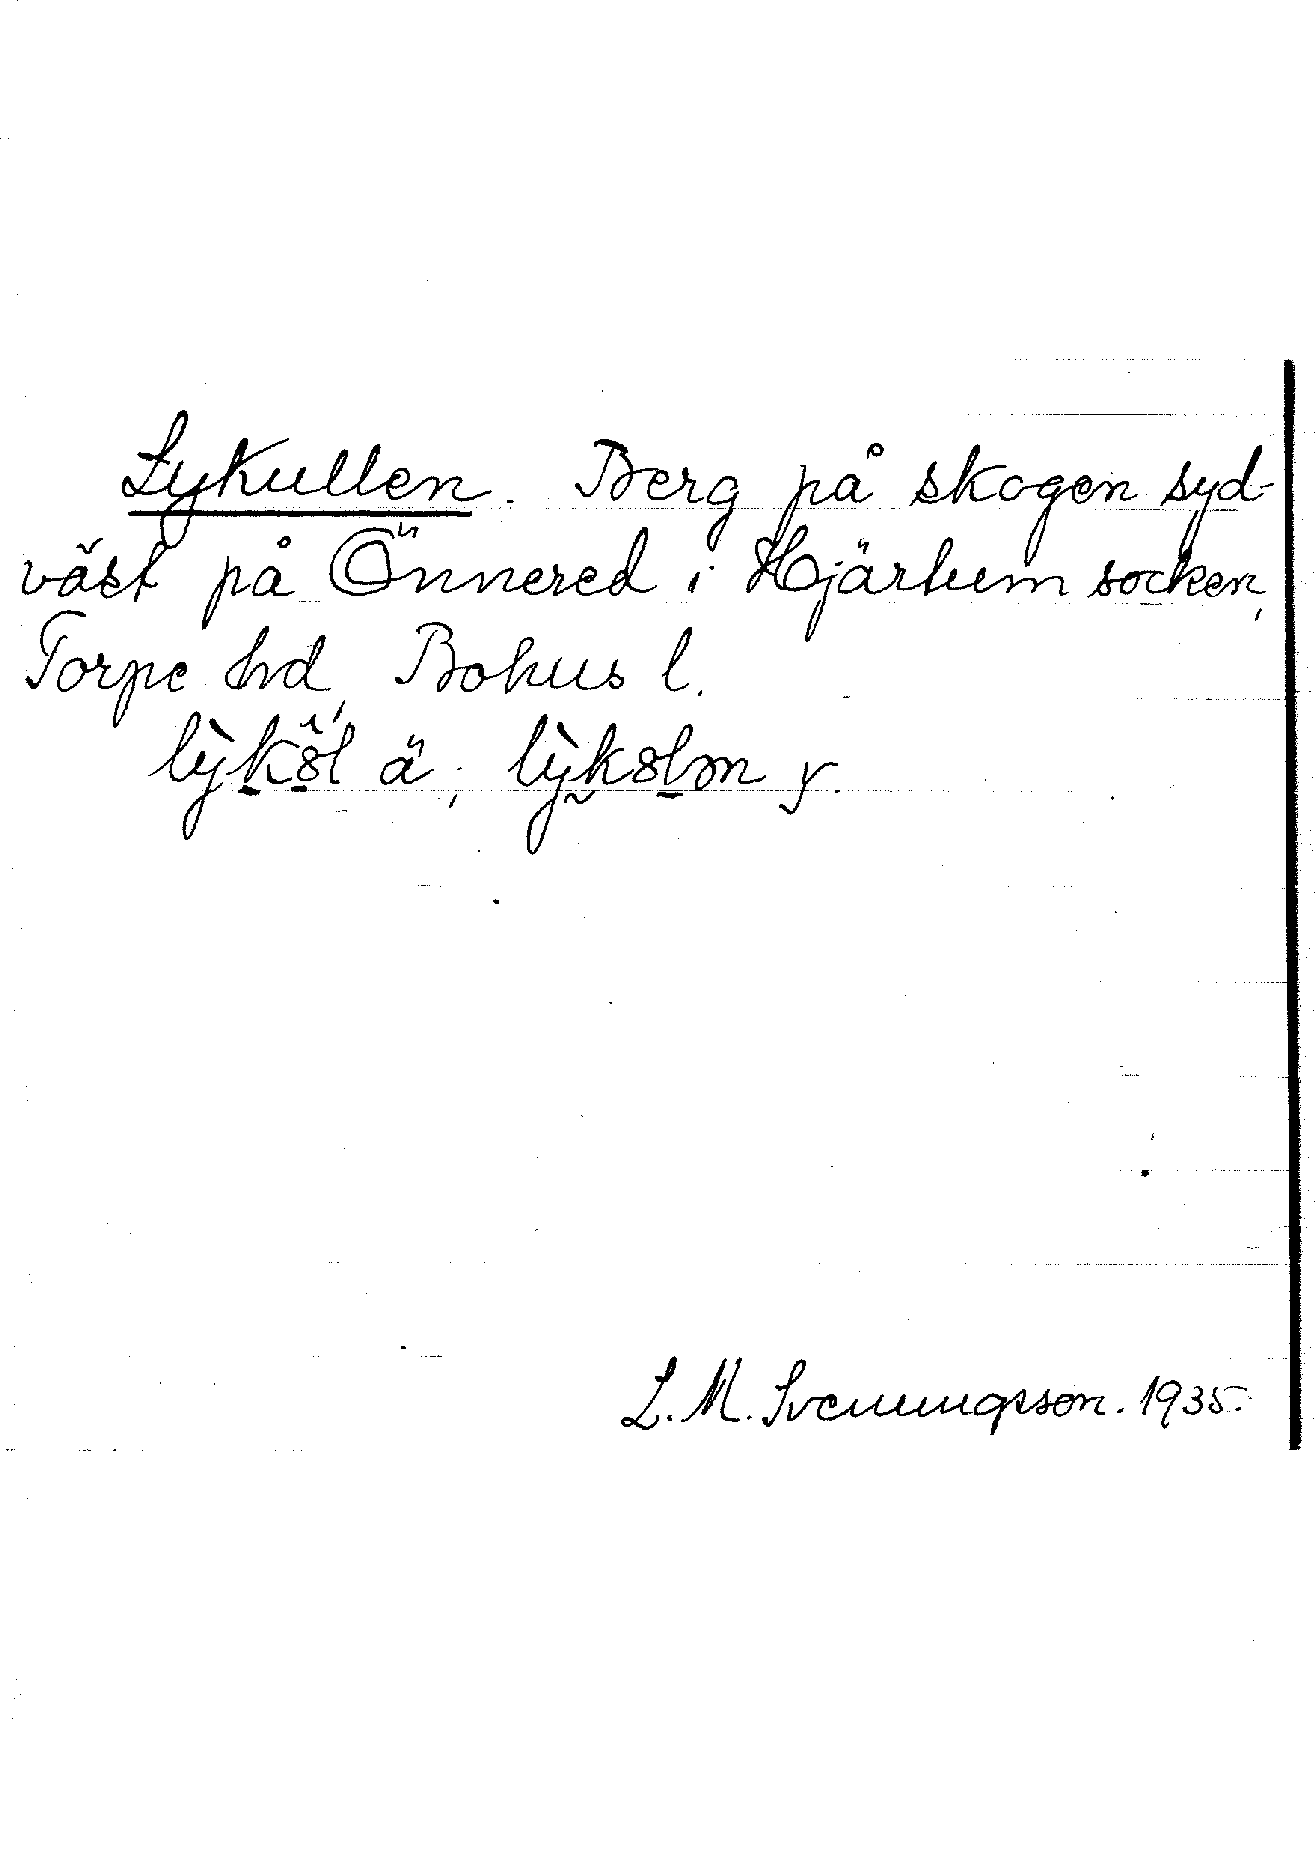 Lykullen. Berg på skogen syd-
väst på Önnered i Hjärtum socken,
Torpe hd, Bohus l.
ä; y.
L. M. Svenungsson. 1935.